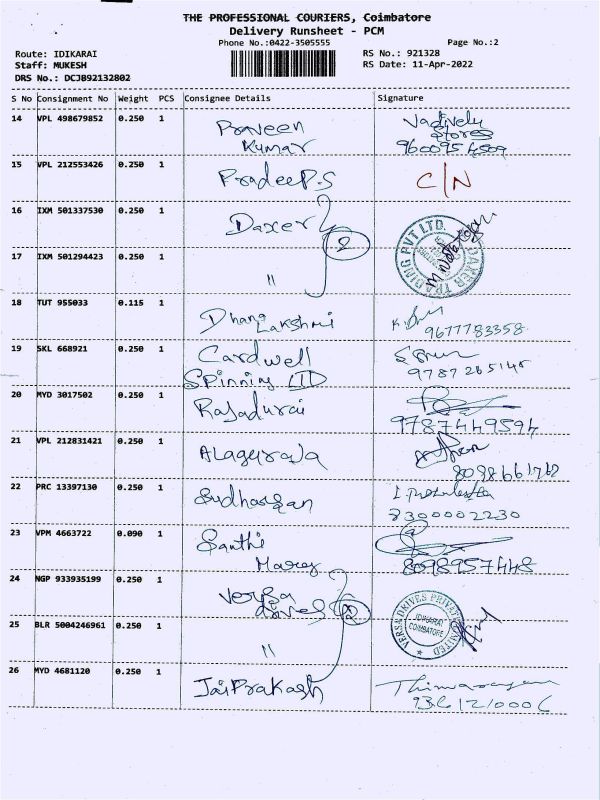 THE PROFESSIONAL COURIERS, Coimbatore
Delivery Runsheet - PCM
Phone No.:0422-3505555
Page No.:2
Route: IDIKARAI
RS No.: 921328
Staff: MUKESH
RS Date: 11-Apr-2022
DRS No.: DCJ892132802
S No Consignment No Weight PCS Consignee Details Signature
14 VPL 498679852 0.250 1 Praveen Kumar Vadively Stores
15 VPL 212553426 0.250 1 Pradeep.S C/N
16 IXM 501337530 0.250 1 Daxer 2
DAXER TRADING PVT LTD.
17 IXM 501294423 0.250 1 "
18 TUT 955033 0.115 1 Dhana Lakshmi 9677783358
19 SKL 668921 0.250 1 Cardwell Spinning LTD
20 MYD 3017502 0.250 1 Rajadurai 9787449594
21 VPL 212831421 0.250 1 Alaguraja
22 PRC 13397130 0.250 1 Sudharsan 8300002230
23 VPM 4663722 0.090 1 Santhi 8098957448
24 NGP 933935199 0.250 1 Versa drives 2
VERSA DRIVES PRIVATE LIMITED
IDIKARAI
COIMBATORE
25 BLR 5004246961 0.250 1 "
26 MYD 4681120 0.250 1 Jai Prakash